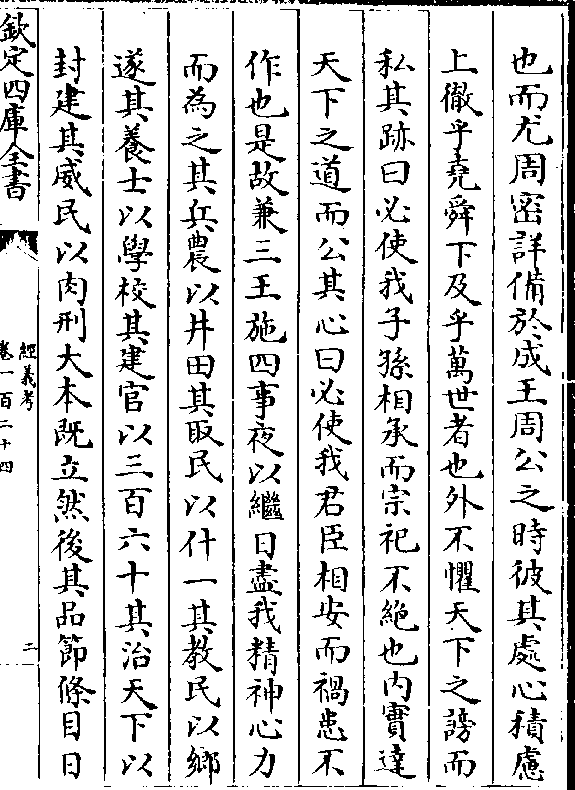 也而尤周密詳備於成王周公之時彼其處心積慮
上徹乎堯舜下及乎萬世者也外不懼天下之謗而
私其跡曰必使我子孫相承而宗祀不絶也内實達
天下之道而公其心曰必使我君臣相安而禍患不
作也是故兼三王施四事夜以繼日盡我精神心力
而為之其兵農以井田其取民以什一其教民以鄉
遂其養士以學校其建官以三百六十其治天下以
封建其威民以肉刑大本既立然後其品節條目日
欽定四庫全書
經義考
卷一百二十四
二